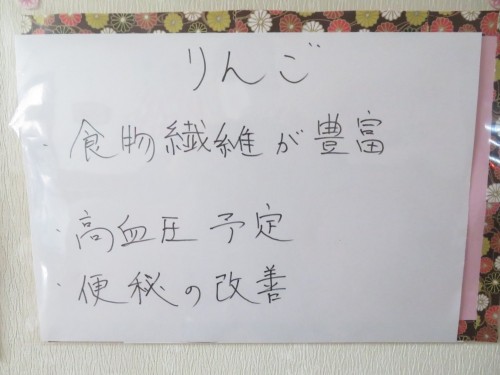 りんご
・食物繊維が豊富
・高血圧予定
・便秘の改善